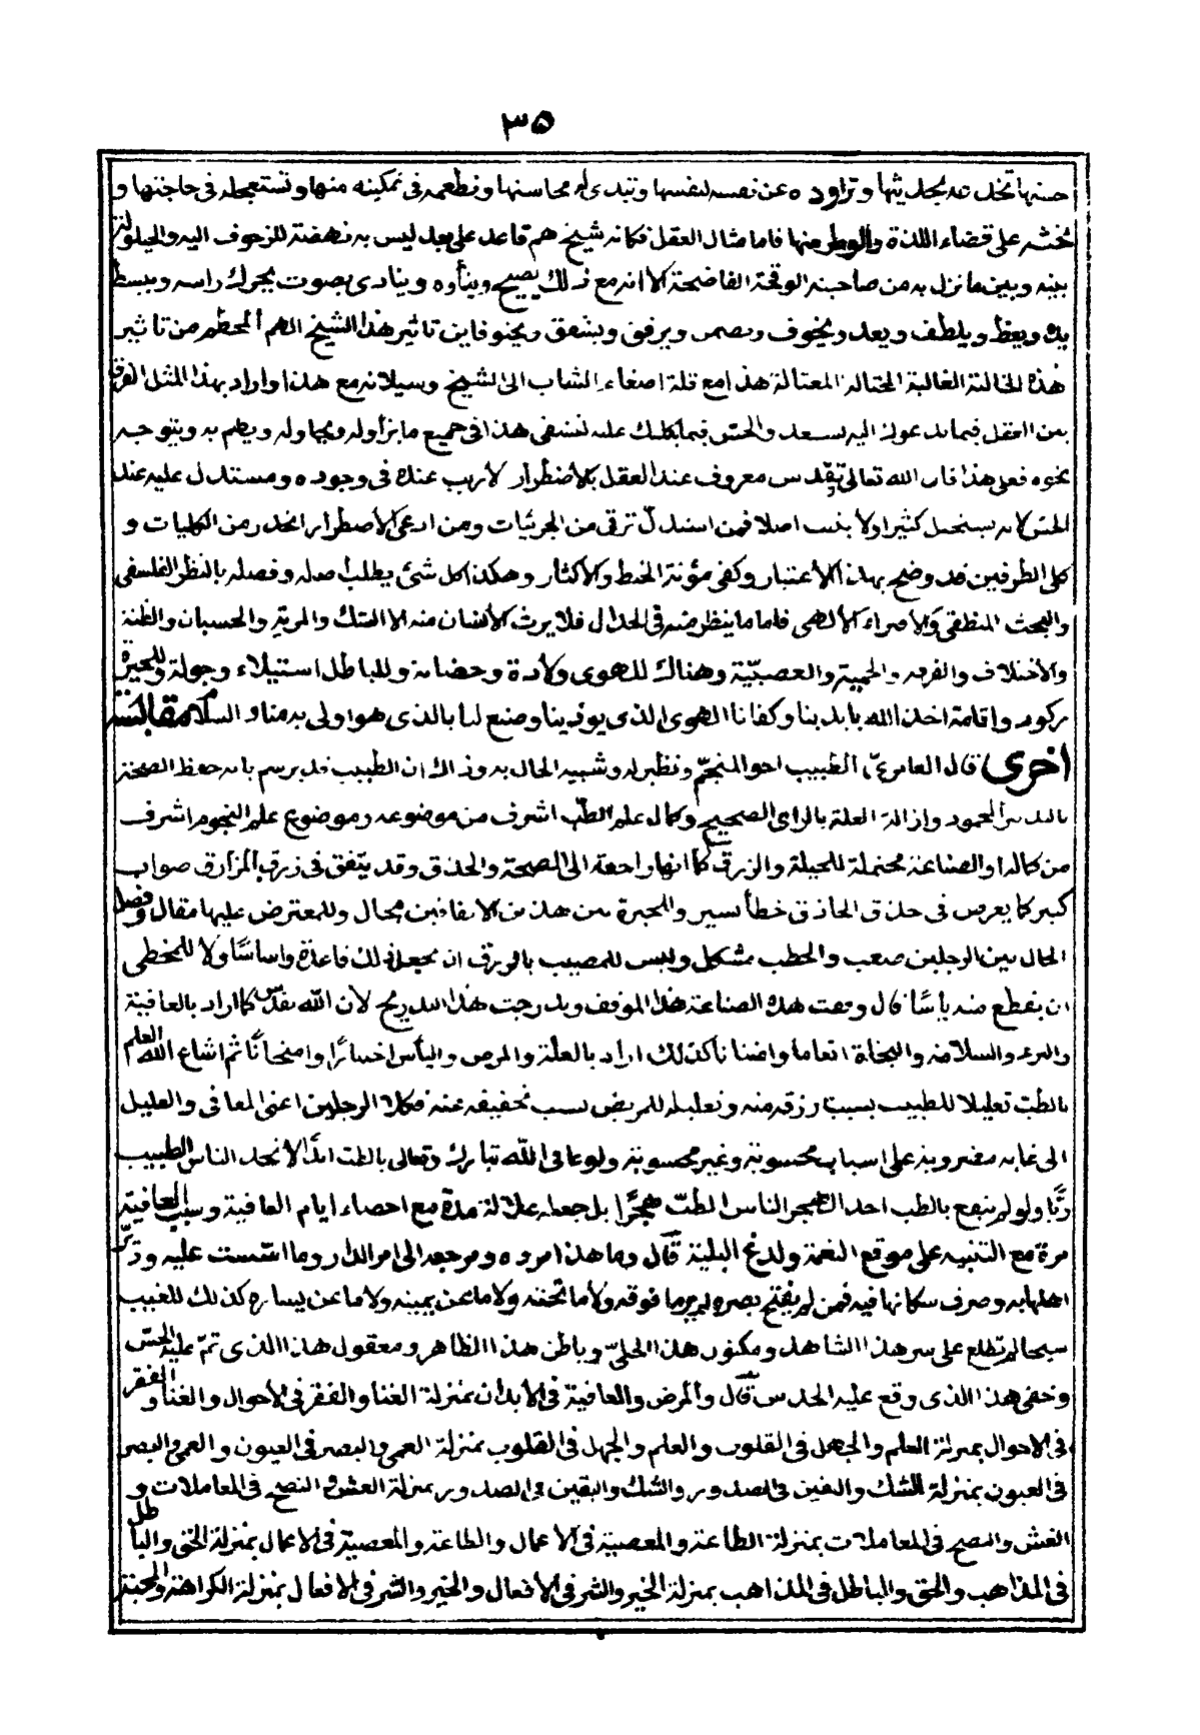 ٣٥
حسنها تخدعه بحديثها وتراوده عن نفسه لنفسها وتبدى له محاسنها وتطعمه فى تمكينه منها وتستعجله فى حاجتها و
تحثه على قضاء اللذة والوطر منها فاما مثال العقل فكانه شيخ هم قاعد على بعد ليس به نهضة للزحوف اليه والحيلولة
بينه وبين ما نزل به من صاحبته الوقحة الفاضحة الا انه مع ذلك يصيح ويتأوه وينادى بصوت يحرك راسه ويبسط
يده ويعظ ويلطف ويعد ويخوف ويرفق ويشفق ويحنو فاين تاثير هذا الشيخ الهم المحطم من تاثير
هذه الخالبة الغالبة المحتالة المغتالة هذا مع قلة اصغاء الشاب الى الشيخ وسيلانه مع هذا واراد بهذا المثل الفرق
بين العقل فيما يدعوك اليه لتسعد والحس فيما لتشقى هذا فى جميع ما يزاوله ويحاوله ويطم به ويتوجه
نحوه فعلى هذا فان الله تعالى وتقدس معروف عند العقل بالاضطرار لا ريب عنده فى وجوده ومستدل عليه عند
الحس لانه يستحيل كثيرا ولا يثبت اصلا فمن استدل ترقى من الجزئيات ومن ادعى الاضطرار انحدر من الكليات و
كلى الطرفين قد وضح بهذا الاعتبار وكفى مؤنة الخبط والاكثار وهكذا كل شئ يطلب اصله وفصله بالنظر الفلسفى
والبحث المنطقى والاصراء الالهى فاما ما ينظر منه فى الجدال فلا يرث الانسان منه الا الشك والمرية والحسبان والظنة
والاختلاف والفرقة والحمية والعصبيّة وهناك للهوى ولادة وحضانة وللباطل استيلاء وجولة وللحيرة
ركود واقامة اخذ الله بايدينا وكفانا الهوى الذى يوذينا وصنع لنا بالذى هو اولى به منا والسلام مقابسة
اخرى قال العامرى الطبيب اخو المنجّم ونظيره وشبيه الحال به وذاك ان الطبيب قد يرسم بانه حفظ الصحة
المحمود وازالة العلة بالراى الصحيح وكمال علم الطب اشرف من موضوعه وموضوع علم النجوم اشرف
من كماله والصناعة محتملة للحيلة والزرق كما انها راجعة الى الصحة والحذق وقد يتفق فى زرق المزارق صواب
كثير كما يعرض فى حذق الحاذق خطأ يسير وللحيرة بين هذين الاتفاقين مجال وللمعترض عليها مقال وفصل
الحال بين الرجلين صعب والخطب مشكل وليس للمصيب بالزرق ان يجعل ذلك قاعدة واساسًا ولا للمخطى
ان يقطع منه ياسًا قال وقعت هذه الصناعة هذا الموقف وتدرجت هذا التدريج لان الله تقدس كما اراد بالعافية
والبرء والسلامة والنجاة انعاما وافضالا كذلك اراد بالعلة والمرض والياس اختبارًا وامتحانًا ثم اشاع الله العلم
بالطب تعليلا للطبيب بسبب رزقه منه وتعليله للمريض بسبب تخفيفه عنه فكلا الرجلين اعنى المعافى والعليل
الى غايه مضروبة على اسباب محسوبة وغير محسوبة ولو عافى الله تبارك وتعالى بالطب ابدا لاتخذ الناس الطبيب
ربًّا ولو لم ينتفع بالطب احد الهجر الناس الطبّ هجرًا بل جعله علالة مدة مع احصاء ايام العافية وسبب العافية
مرة مع التنبيه على موقع النعمة ولدغ البلية قال وما هذا امره ومرجعه الى امر الدار وما اسّست عليه وذكّر
اهلها به وصرف سكانها فيه فمن لم يفتح بصره لم ير ما فوقه ولا ما تحته ولا ما عن يمينه ولا ما عن يساره كذلك للغيب
لم تطلع على سر هذا الشاهد ومكنون هذا الجلىّ وباطن هذا الظاهر ومعقول هذا الذى تمّ عليه الحسّ
وخفى هذا الذى وقع عليه الحدس قال والمرض والعافية فى الابدان بمنزلة الغنا والفقر فى الاحوال والغنا والفقر
فى الاحوال بمنزلة العلم والجهل فى القلوب والعلم والجهل فى القلوب بمنزلة العمى والبصر فى العيون والعمى والبصر
فى العيون بمنزلة الشك واليقين فى الصدور والشك واليقين فى الصدور بمنزلة الغش والنصح فى المعاملات و
الغش والنصح فى المعاملات بمنزلة الطاعة والمعصية فى الاعمال والطاعة والمعصية فى الاعمال بمنزلة الحق والباطل
فى المذاهب والحق والباطل فى المذاهب بمنزلة الخير والشر فى الافعال والخير والشر فى الافعال بمنزلة الكراهة والمحبة